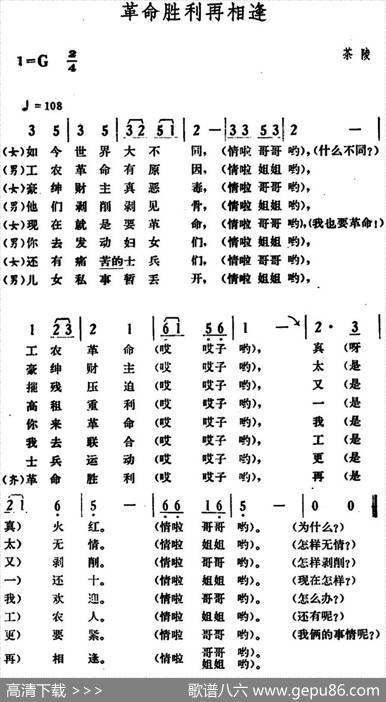 革命胜利再相逢
1=G 2/4
茶陵
♩=108
3 5 | 3 5 | 32 51 | 2 — | 33 53 | 2 — |
(女)如今世界大不同，(情啦哥哥哟)，(什么不同?)
(男)工农革命有原因，(情啦姐姐哟)，
(女)豪绅财主真恶毒，(情啦哥哥哟)，
(男)他们剥削剥见骨，(情啦姐姐哟)，
(女)现在就是要革命，(情啦哥哥哟)，(我也要革命!)
(男)你去发动妇女们，(情啦姐姐哟)，
(女)还有痛苦的士兵们，(情啦哥哥哟)，
(男)儿女私事暂丢开，(情啦姐姐哟)，
1 23 | 2 1 | 61 56 | 1 — | 2· 3
工农革命(哎哎子哟)，真(呀
豪绅财主(哎哎子哟)，太(是
摧残压迫(哎哎子哟)，又(是
高租重利(哎哎子哟)，一(是
你来革命(哎哎子哟)，我(是
我去联合(哎哎子哟)，工(是
士兵运动(哎哎子哟)，更(是
(齐)革命胜利(哎哎子哟)，再(是
21 6 | 5 — | 66 16 | 5 — | 0 0
真)火红。(情啦哥哥哟)。(为什么?)
太)无情。(情啦姐姐哟)。(怎样无情?)
又)剥削。(情啦哥哥哟)。(怎样剥削?)
一)还十。(情啦姐姐哟)。(现在怎样?)
我)欢迎。(情啦哥哥哟)。(怎么办?)
工)农人。(情啦姐姐哟)。(还有呢?)
更)要紧。(情啦哥哥哟)。(我俩的事情呢?)
再)相逢。(情啦哥哥姐姐哟)。
高清下载 >>>
歌谱八六 www.gepu86.com